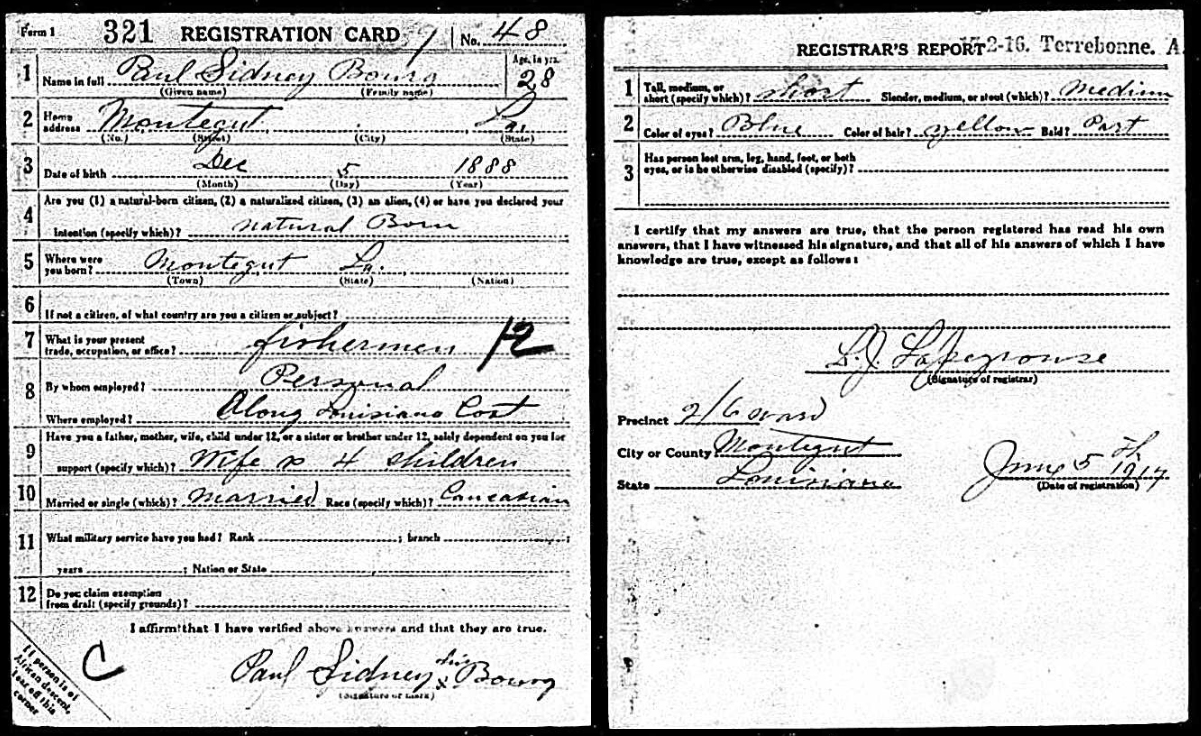 Form 1 321 REGISTRATION CARD No. 48
1 Name in full Paul Sidney Bourg Age, in yrs. 28
(Given name) (Family name)
2 Home address Montegut La.
(No.) (Street) (City) (State)
3 Date of birth Dec 5 1888
(Month) (Day) (Year)
4 Are you (1) a natural-born citizen, (2) a naturalized citizen, (3) an alien, (4) or have you declared your
intention (specify which)? natural Born
5 Where were you born? Montegut La.
(Town) (State) (Nation)
6 If not a citizen, of what country are you a citizen or subject?
7 What is your present trade, occupation, or office? fishermen 12
8 By whom employed? Personal
Where employed? Along Louisiana Cost
9 Have you a father, mother, wife, child under 12, or a sister or brother under 12, solely dependent on you for
support (specify which)? Wife 4 children
10 Married or single (which)? Married Race (specify which)? Caucasian
11 What military service have you had? Rank ; branch ;
years ; Nation or State
12 Do you claim exemption from draft (specify grounds)?
I affirm that I have verified above answers and that they are true.
C
Paul Sidney his x Bourg
(Signature or mark)
If person is of
African descent,
tear off this
corner
REGISTRAR'S REPORT 17-2-16. Terrebonne. A
1 Tall, medium, or short (specify which)? short Slender, medium, or stout (which)? Medium
2 Color of eyes? Blue Color of hair? yellow Bald? Part
3 Has person lost arm, leg, hand, foot, or both
eyes, or is he otherwise disabled (specify)?
I certify that my answers are true, that the person registered has read his own
answers, that I have witnessed his signature, and that all of his answers of which I have
knowledge are true, except as follows:
L. J. Lapeyrouse
(Signature of registrar)
Precinct 2/6 ward
City or County Montegut
State Louisiana
June 5 1917
(Date of registration)